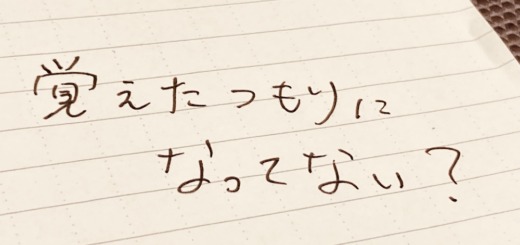 覚えたつもりに
なってない?